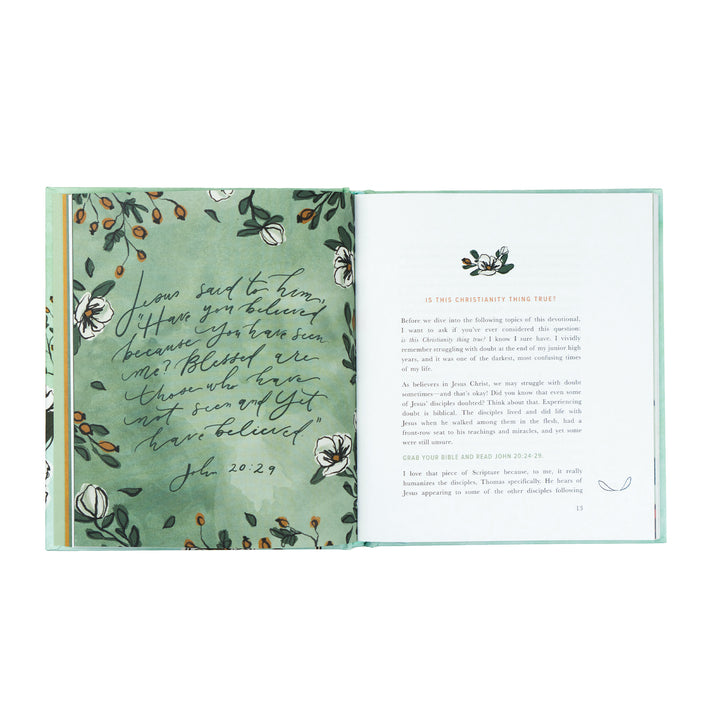 Jesus said to him,
"Have you believed
because you have seen
me? Blessed are
those who have
not seen and yet
have believed"
John 20:29
IS THIS CHRISTIANITY THING TRUE?
Before we dive into the following topics of this devotional,
I want to ask if you've ever considered this question:
is this Christianity thing true? I know I sure have. I vividly
remember struggling with doubt at the end of my junior high
years, and it was one of the darkest, most confusing times
of my life.
As believers in Jesus Christ, we may struggle with doubt
sometimes—and that's okay! Did you know that even some
of Jesus' disciples doubted? Think about that. Experiencing
doubt is biblical. The disciples lived and did life with
Jesus when he walked among them in the flesh, had a
front-row seat to his teachings and miracles, and yet some
were still unsure.
GRAB YOUR BIBLE AND READ JOHN 20:24-29.
I love that piece of Scripture because, to me, it really
humanizes the disciples, Thomas specifically. He hears of
Jesus appearing to some of the other disciples following
15